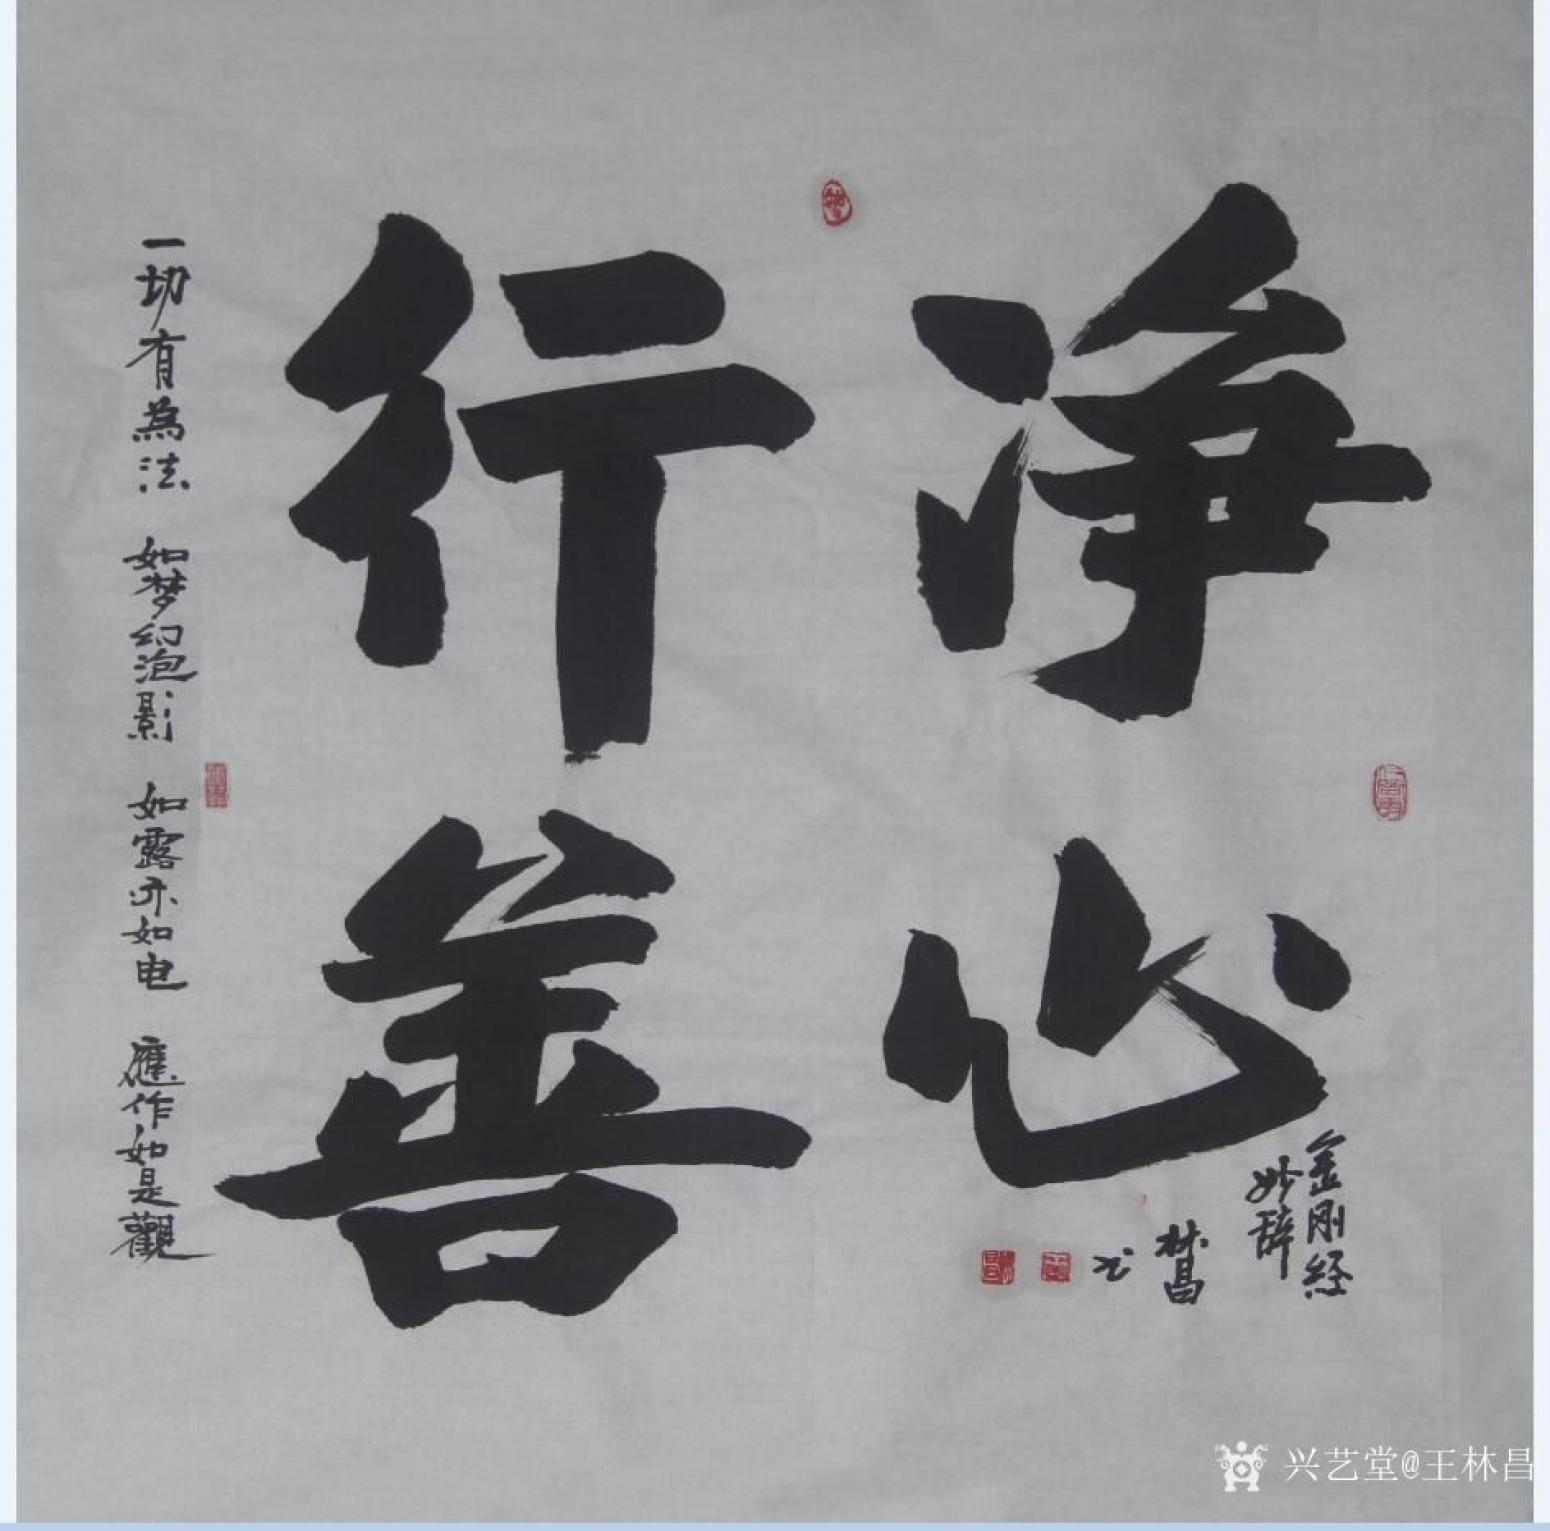 净心
行善
金刚经
妙辞
林昌
书
一切有為法 如梦幻泡影 如露亦如电 應作如是觀
兴艺堂@王林昌